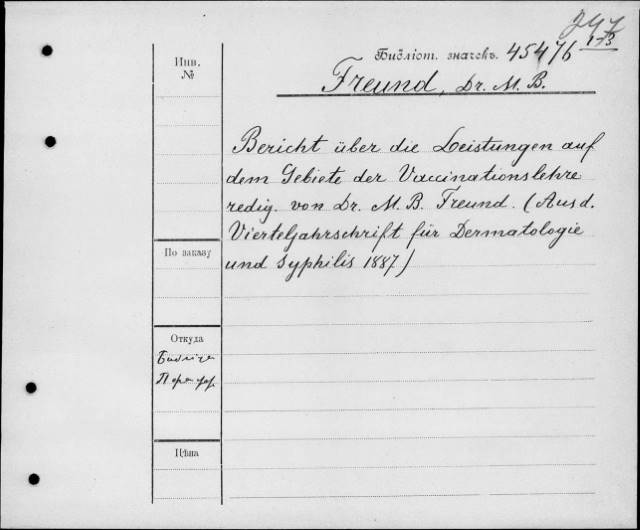 173
Инв.
№
Библіот. значекъ. 45476
Freund, Dr. M. B.
Bericht über die Leistungen auf
dem Gebiete der Vaccinationslehre
redig. von Dr. M. B. Freund. (Aus d.
Vierteljahrschrift für Dermatologie
und Syphilis 1887)
По заказу
Откуда
Цѣна